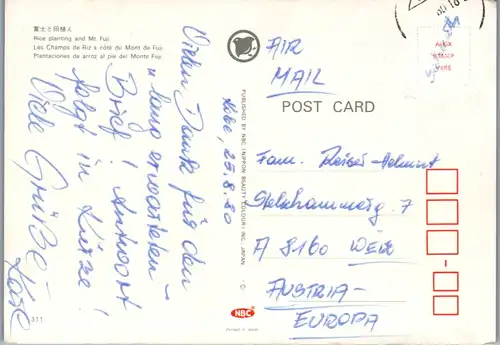 富士と田植え
Rice planting and Mt. Fuji.
Les Champs de Riz a côté du Mont de Fuji.
Plantaciones de arroz al pie del Monte Fuji.
Kobe, 25.8.80
Vielen Dank für den
" lang erwarteten "
Brief! Antwort
folgt in Kürze!
Viele Grüße
PUBLISHED BY NBC (NIPPON BEAUTY COLOUR) INC. JAPAN
NBC
Printed in Japan
371
AIR
MAIL
AFFIX
STAMP
HERE
POST CARD
Fam.
Stelzhammerg. 7
A 8160 WEIZ
AUSTRIA-
EUROPA